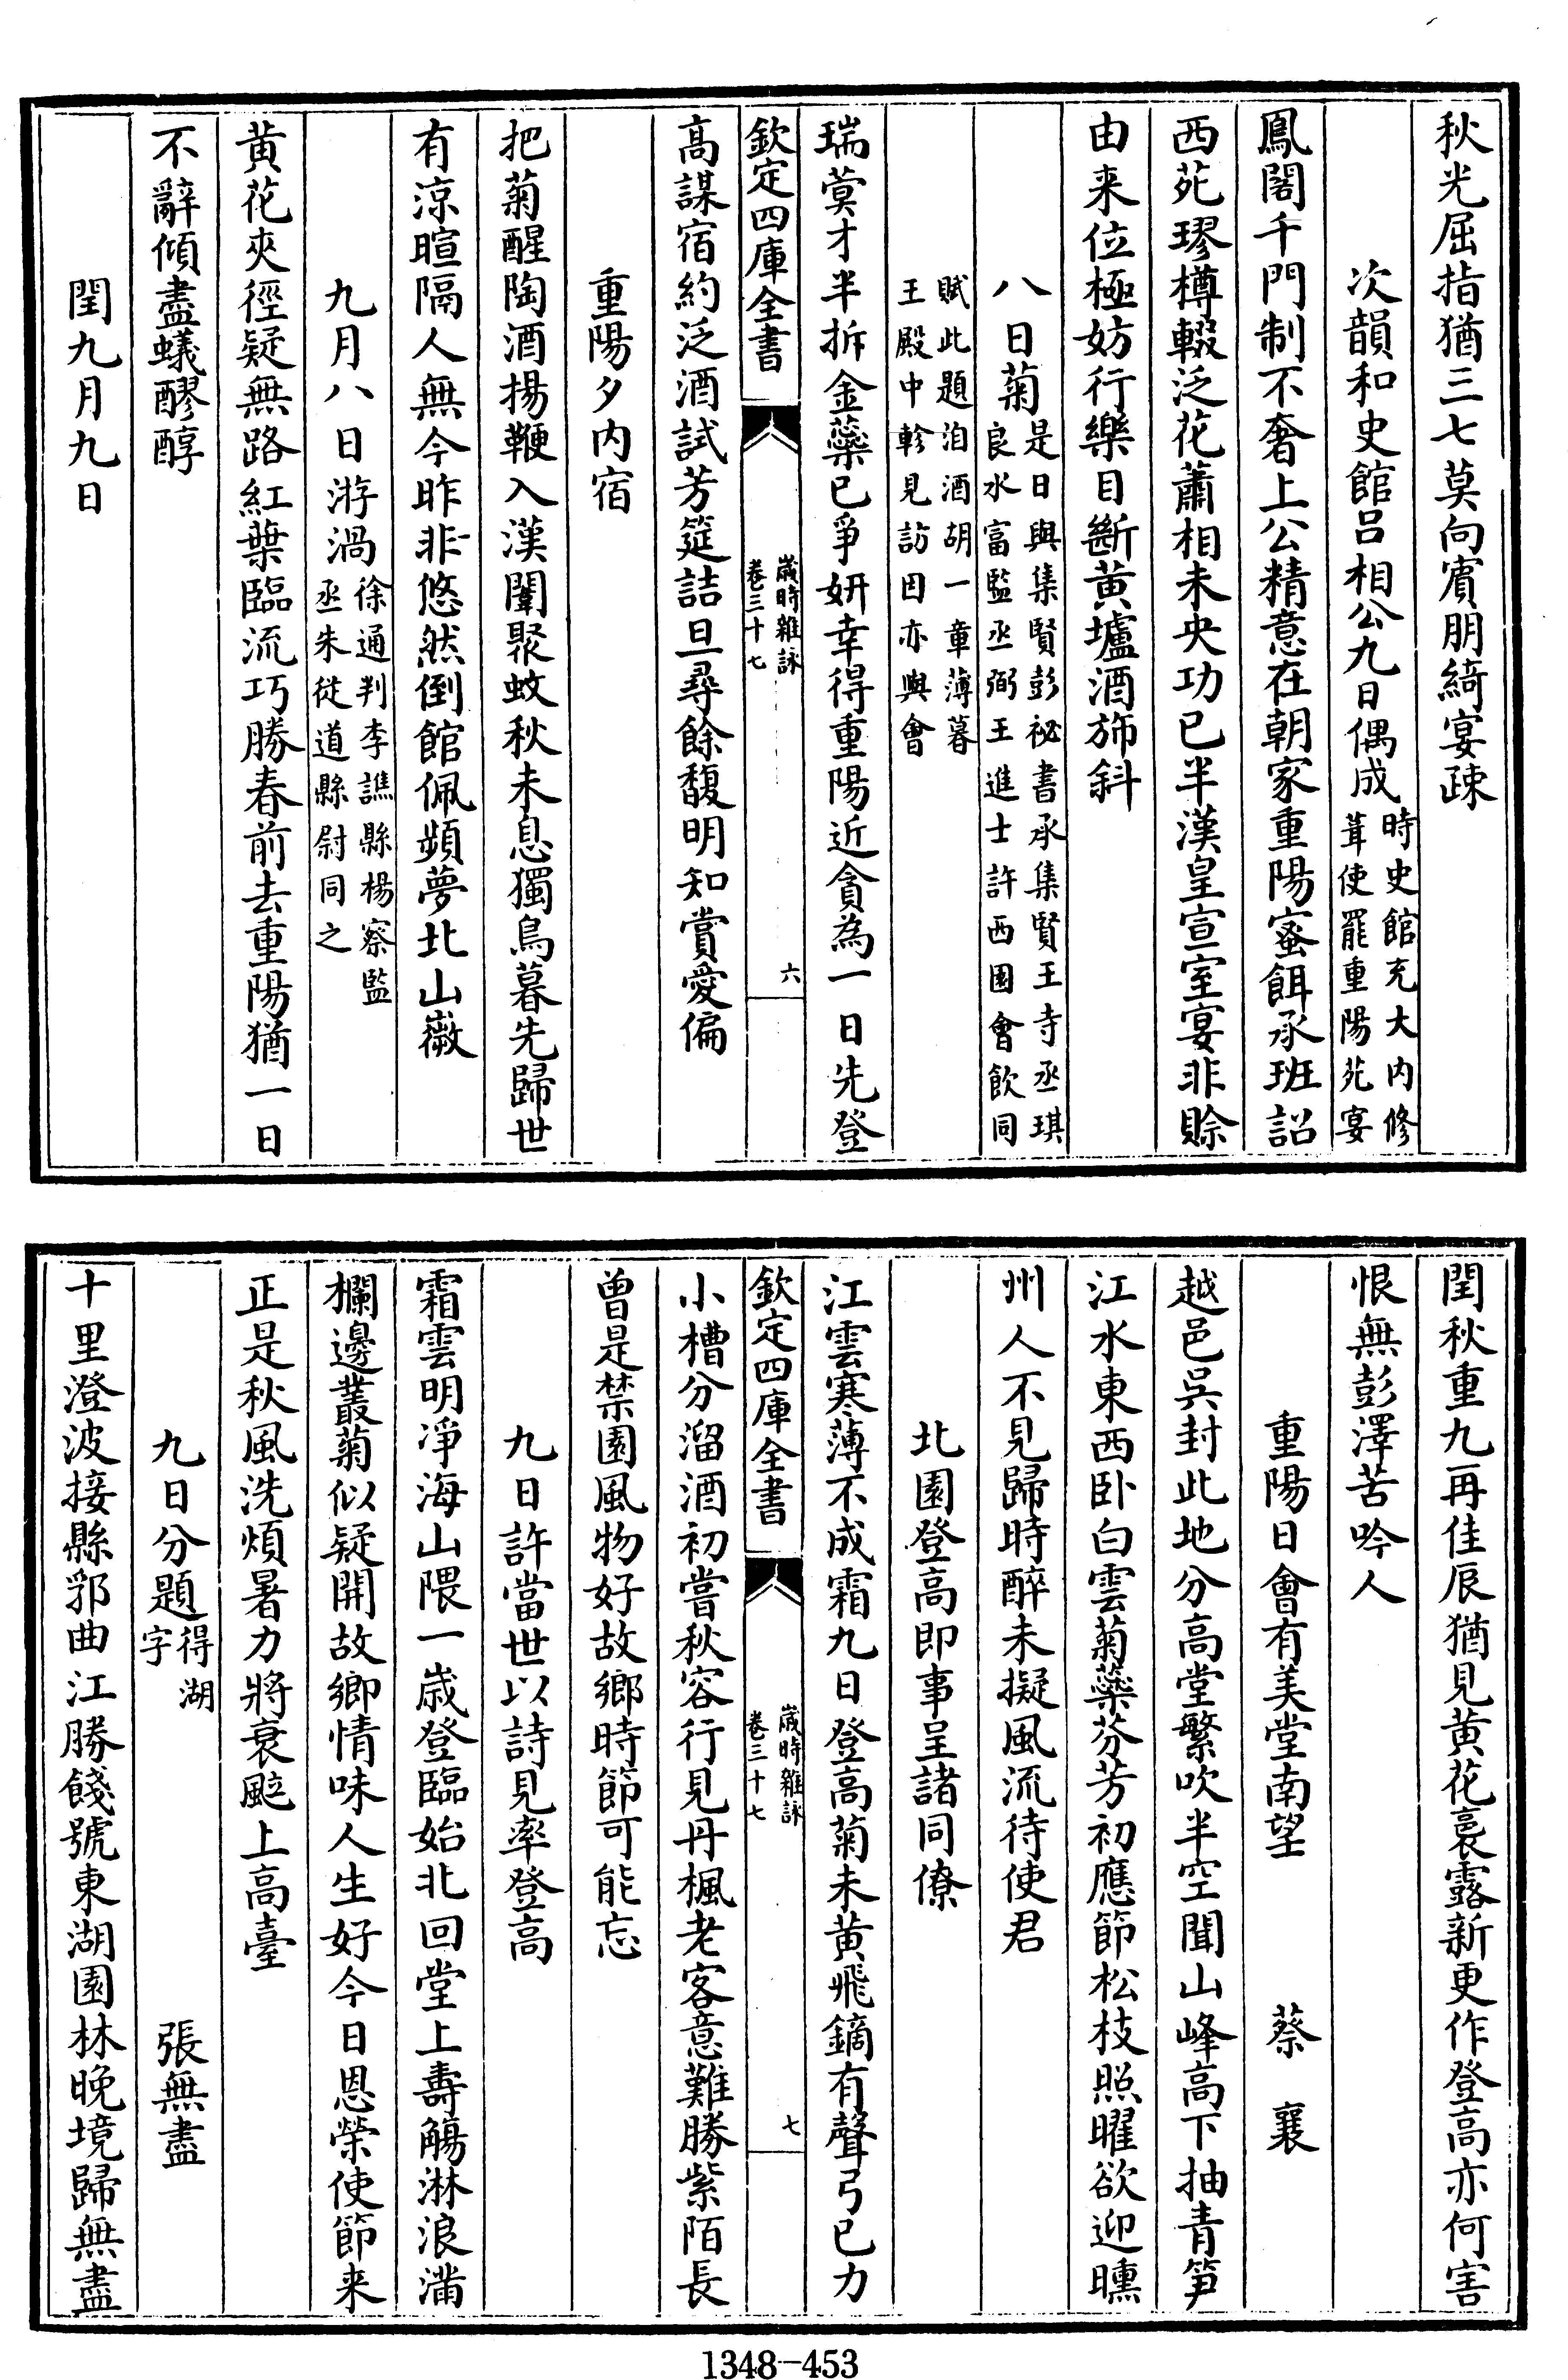 秋光屈指猶三七莫向賓朋綺宴疎
次韻和史館呂相公九日偶成時史館充大内修
葺使罷重陽苑宴
鳳閣千門制不奢上公精意在朝家重陽蜜餌承班詔
西苑璆樽輟泛花蕭相未央功已半漢皇宣室宴非賒
由来位極妨行樂目斷黄壚酒斾斜
八日菊是日與集賢彭祕書承集賢王寺丞琪
良水富監丞弼王進士許西園會飲同
賦此題洎酒胡一章薄暮
王殿中軫見訪因亦與會
瑞蓂才半拆金蘂已爭妍幸得重陽近貪為一日先登
欽定四庫全書
歲時雜詠
卷三十七
六
高謀宿約泛酒試芳筵詰旦尋餘馥明知賞愛偏
重陽夕内宿
把菊醒陶酒揚鞭入漢闈聚蚊秋未息獨鳥暮先歸世
有涼暄隔人無今昨非悠然倒館佩頻夢北山薇
九月八日游渦徐通判李譙縣楊察監
丞朱從道縣尉同之
黄花夾徑疑無路紅葉臨流巧勝春前去重陽猶一日
不辭傾盡蟻醪醇
閏九月九日
閏秋重九再佳辰猶見黄花裛露新更作登高亦何害
恨無彭澤苦吟人
重陽日會有美堂南望 蔡襄
越邑吳封此地分高堂繁吹半空聞山峰高下抽青筍
江水東西卧白雲菊蘂芬芳初應節松枝照曜欲迎曛
州人不見歸時醉未擬風流待使君
北園登高即事呈諸同僚
江雲寒薄不成霜九日登高菊未黄飛鏑有聲弓已力
欽定四庫全書
歲時雜詠
卷三十七
七
小槽分溜酒初嘗秋容行見丹楓老客意難勝紫陌長
曽是禁園風物好故鄉時節可能忘
九日許當世以詩見率登高
霜雲明淨海山隈一歲登臨始北回堂上壽觴淋浪滿
欄邊叢菊似疑開故鄉情味人生好今日恩榮使節来
正是秋風洗煩暑力將衰颩上高臺
九日分題得湖
字 張無盡
十里澄波接縣郛曲江勝餞號東湖園林晚境歸無盡
1348-453